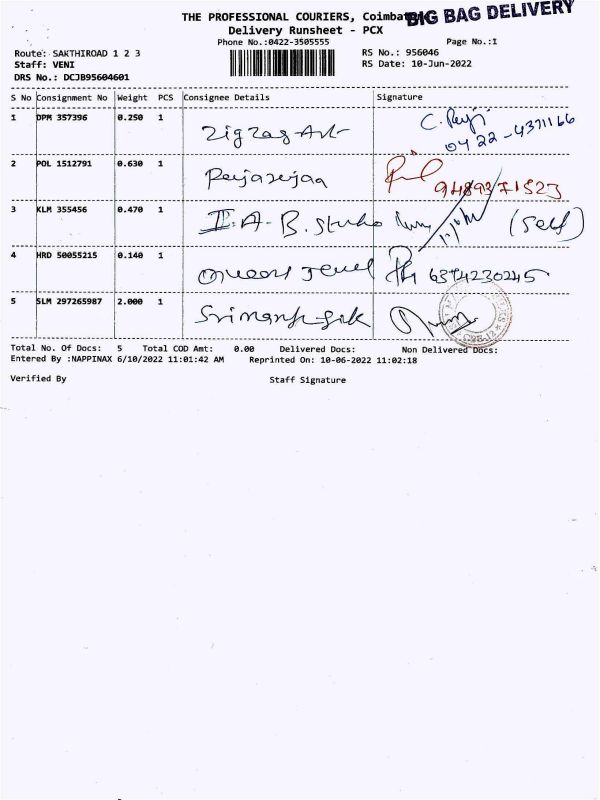 THE PROFESSIONAL COURIERS, Coimbat
BIG BAG DELIVERY
Delivery Runsheet - PCX
Phone No.:0422-3505555 Page No.:1
Route: SAKTHIROAD 1 2 3 RS No.: 956046
Staff: VENI RS Date: 10-Jun-2022
DRS No.: DCJB95604601
S No Consignment No Weight PCS Consignee Details Signature
1 DPM 357396 0.250 1 Zigzag Art C. Reji
0422-4371166
2 POL 1512791 0.630 1 9489371523
3 KLM 355456 0.470 1 I.A.B. Studio (Self)
4 HRD 50055215 0.140 1 6374230245
5 SLM 297265987 2.000 1
Total No. Of Docs: 5 Total COD Amt: 0.00 Delivered Docs: Non Delivered Docs:
Entered By :NAPPINAX 6/10/2022 11:01:42 AM Reprinted On: 10-06-2022 11:02:18
Verified By Staff Signature